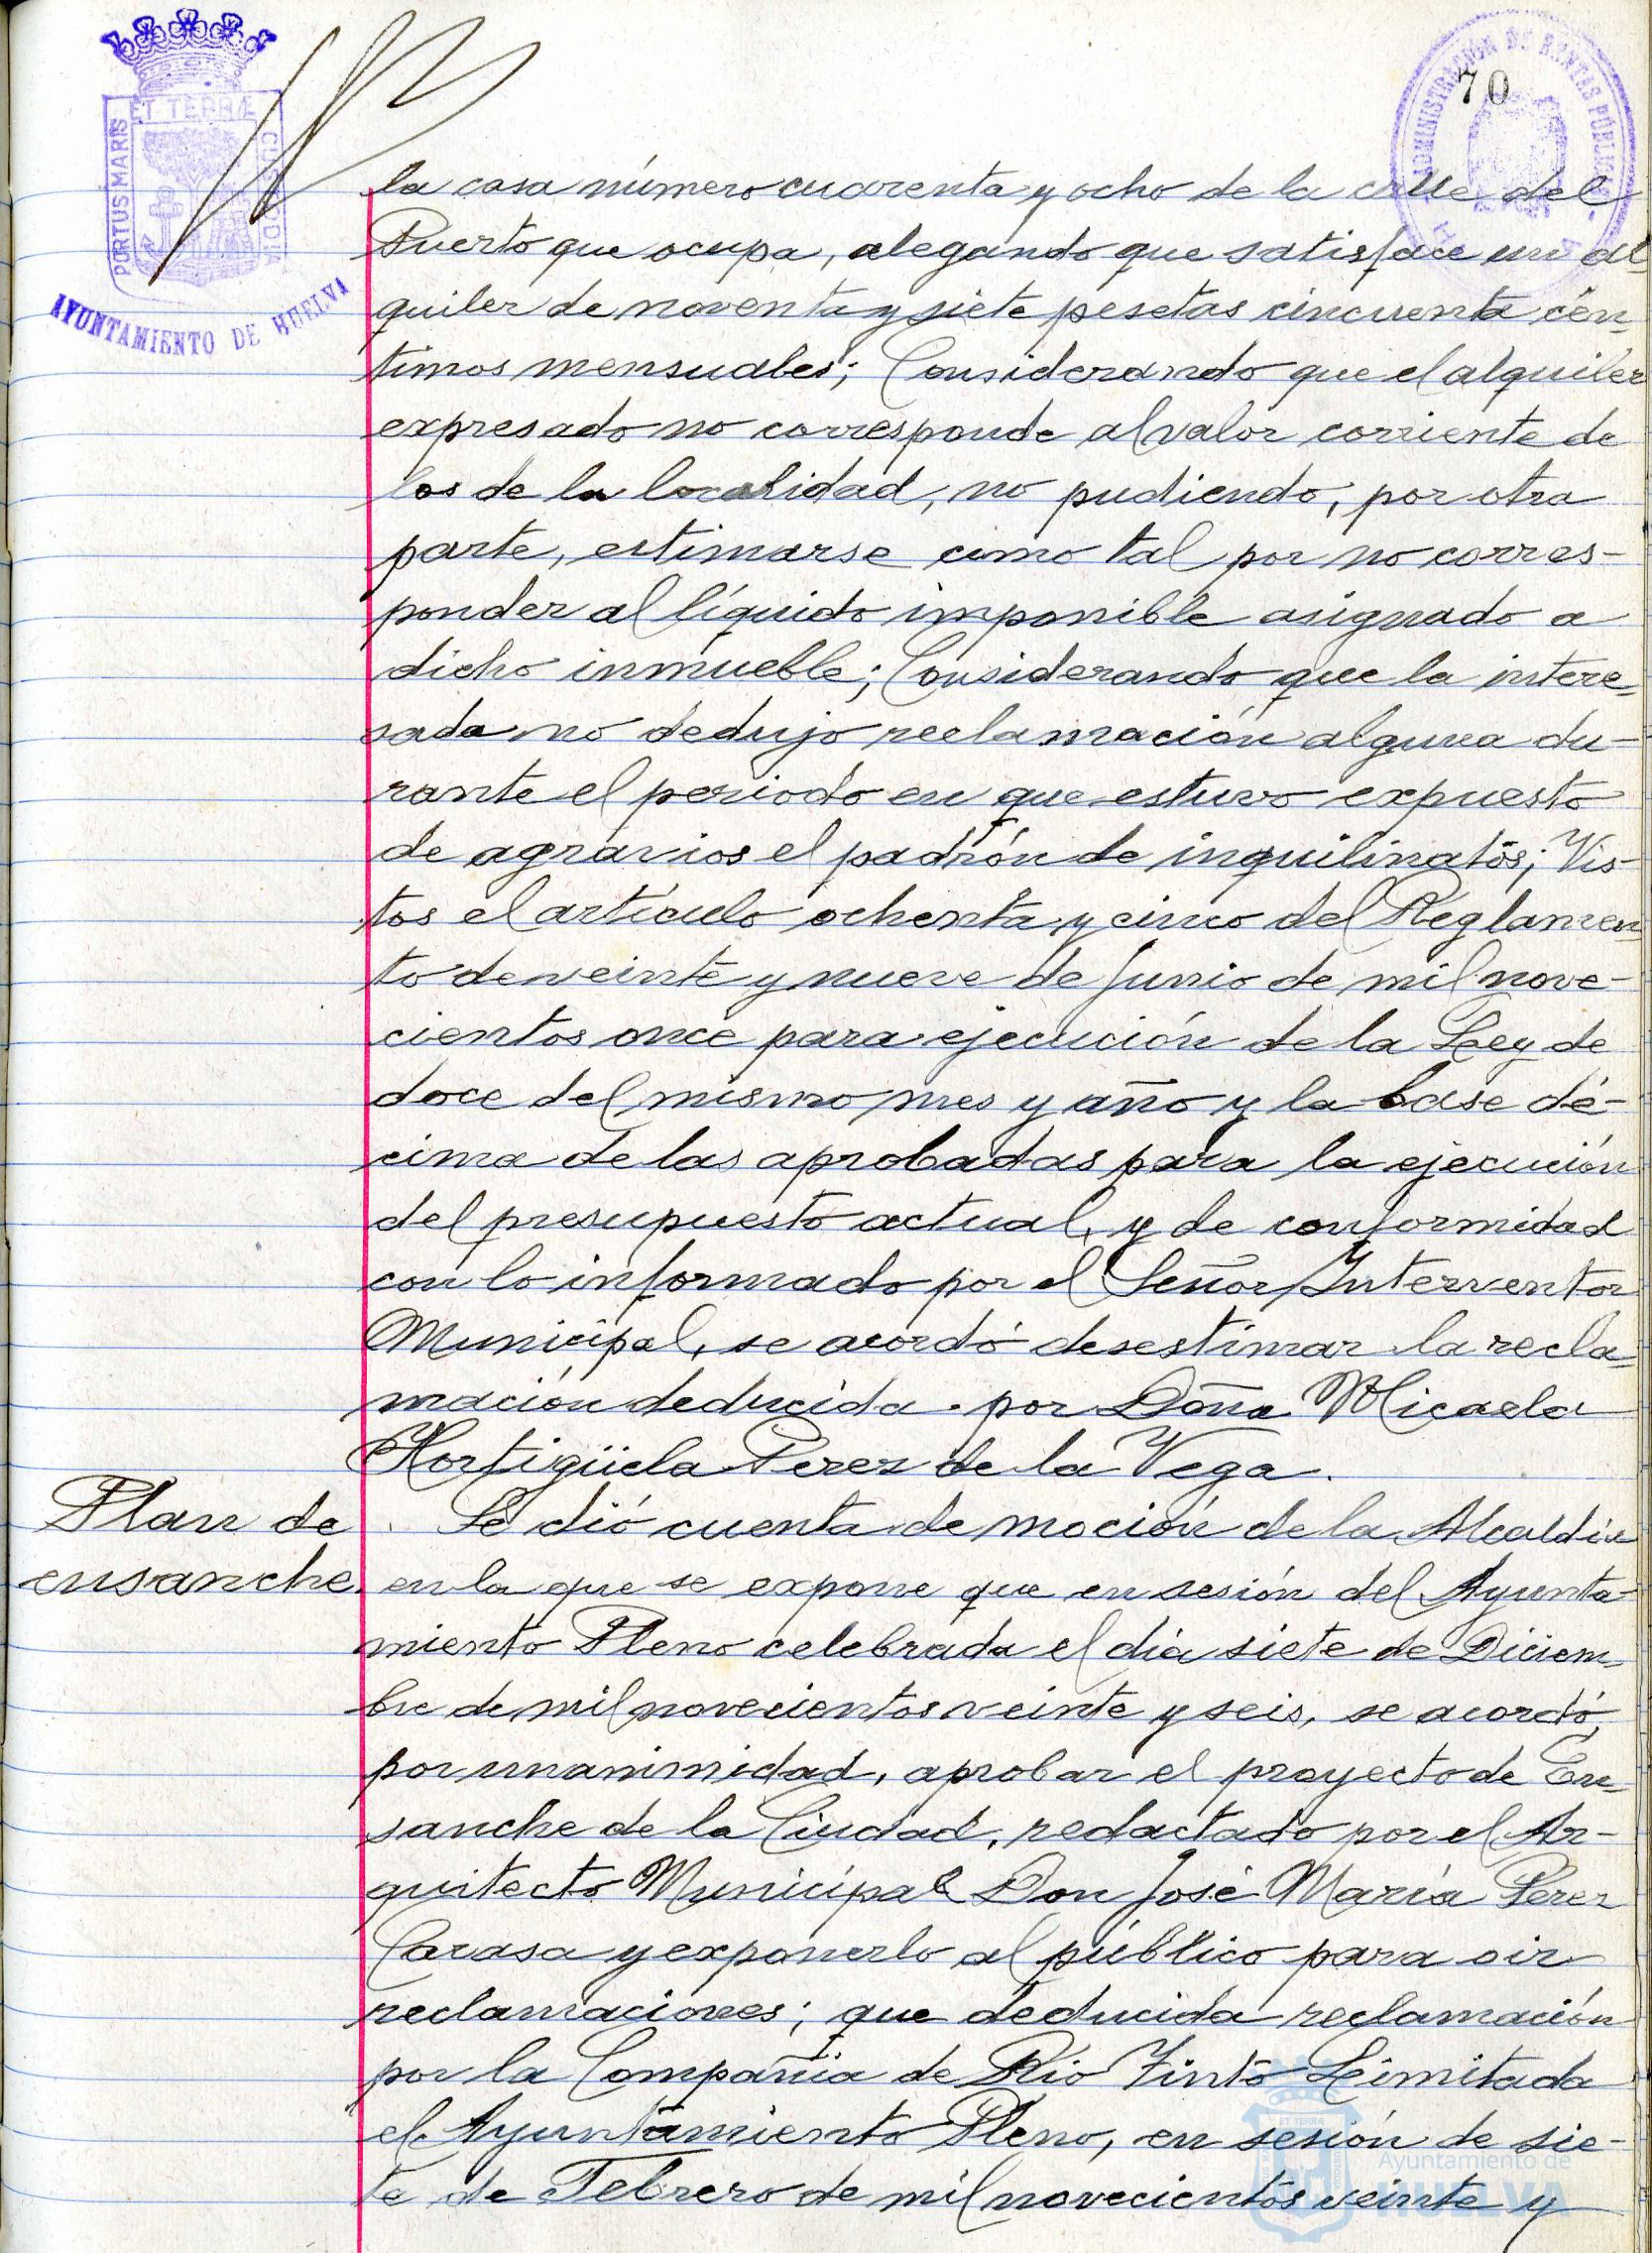 70
ADMINISTRACIÓN DE RENTAS PÚBLICAS
ET TERRÆ
PORTUS MARIS
CUSTODIA
AYUNTAMIENTO DE HUELVA
la casa número cuarenta y ocho de la calle del
Puerto que ocupa, alegando que satisface un al-
quiler de noventa y siete pesetas cincuenta cén-
timos mensuales; Considerando que el alquiler
expresado no corresponde al valor corriente de
los de la localidad, no pudiendo, por otra
parte, estimarse como tal por no corres-
ponder al líquido imponible asignado a
dicho inmueble; Considerando que la intere-
sada no dedujo reclamación alguna du-
rante el periodo en que estuvo expuesto
de agravios el padrón de inquilinatos; Vis-
tos el artículo ochenta y cinco del Reglamen-
to de veinte y nueve de Junio de mil nove-
cientos once para ejecución de la Ley de
doce del mismo mes y año y la base dé-
cima de las aprobadas para la ejecución
del presupuesto actual, y de conformidad
con lo informado por el Señor Interventor
Municipal, se acordó desestimar la recla-
mación deducida por Doña Micaela
Hortigüela Perez de la Vega.
Plan de
ensanche.
Se dió cuenta de moción de la Alcaldía
en la que se expone que en sesión del Ayunta-
miento Pleno celebrada el día siete de Diciem-
bre de mil novecientos veinte y seis, se acordó,
por unanimidad, aprobar el proyecto de En-
sanche de la Ciudad, redactado por el Ar-
quitecto Municipal Don José María Perez
Carasa y exponerlo al público para oir
reclamaciones; que deducida reclamación
por la Compañía de Río Tinto Limitada
el Ayuntamiento Pleno, en sesión de sie-
te de Febrero de mil novecientos veinte y
ET TERRA
Ayuntamiento de
HUELVA